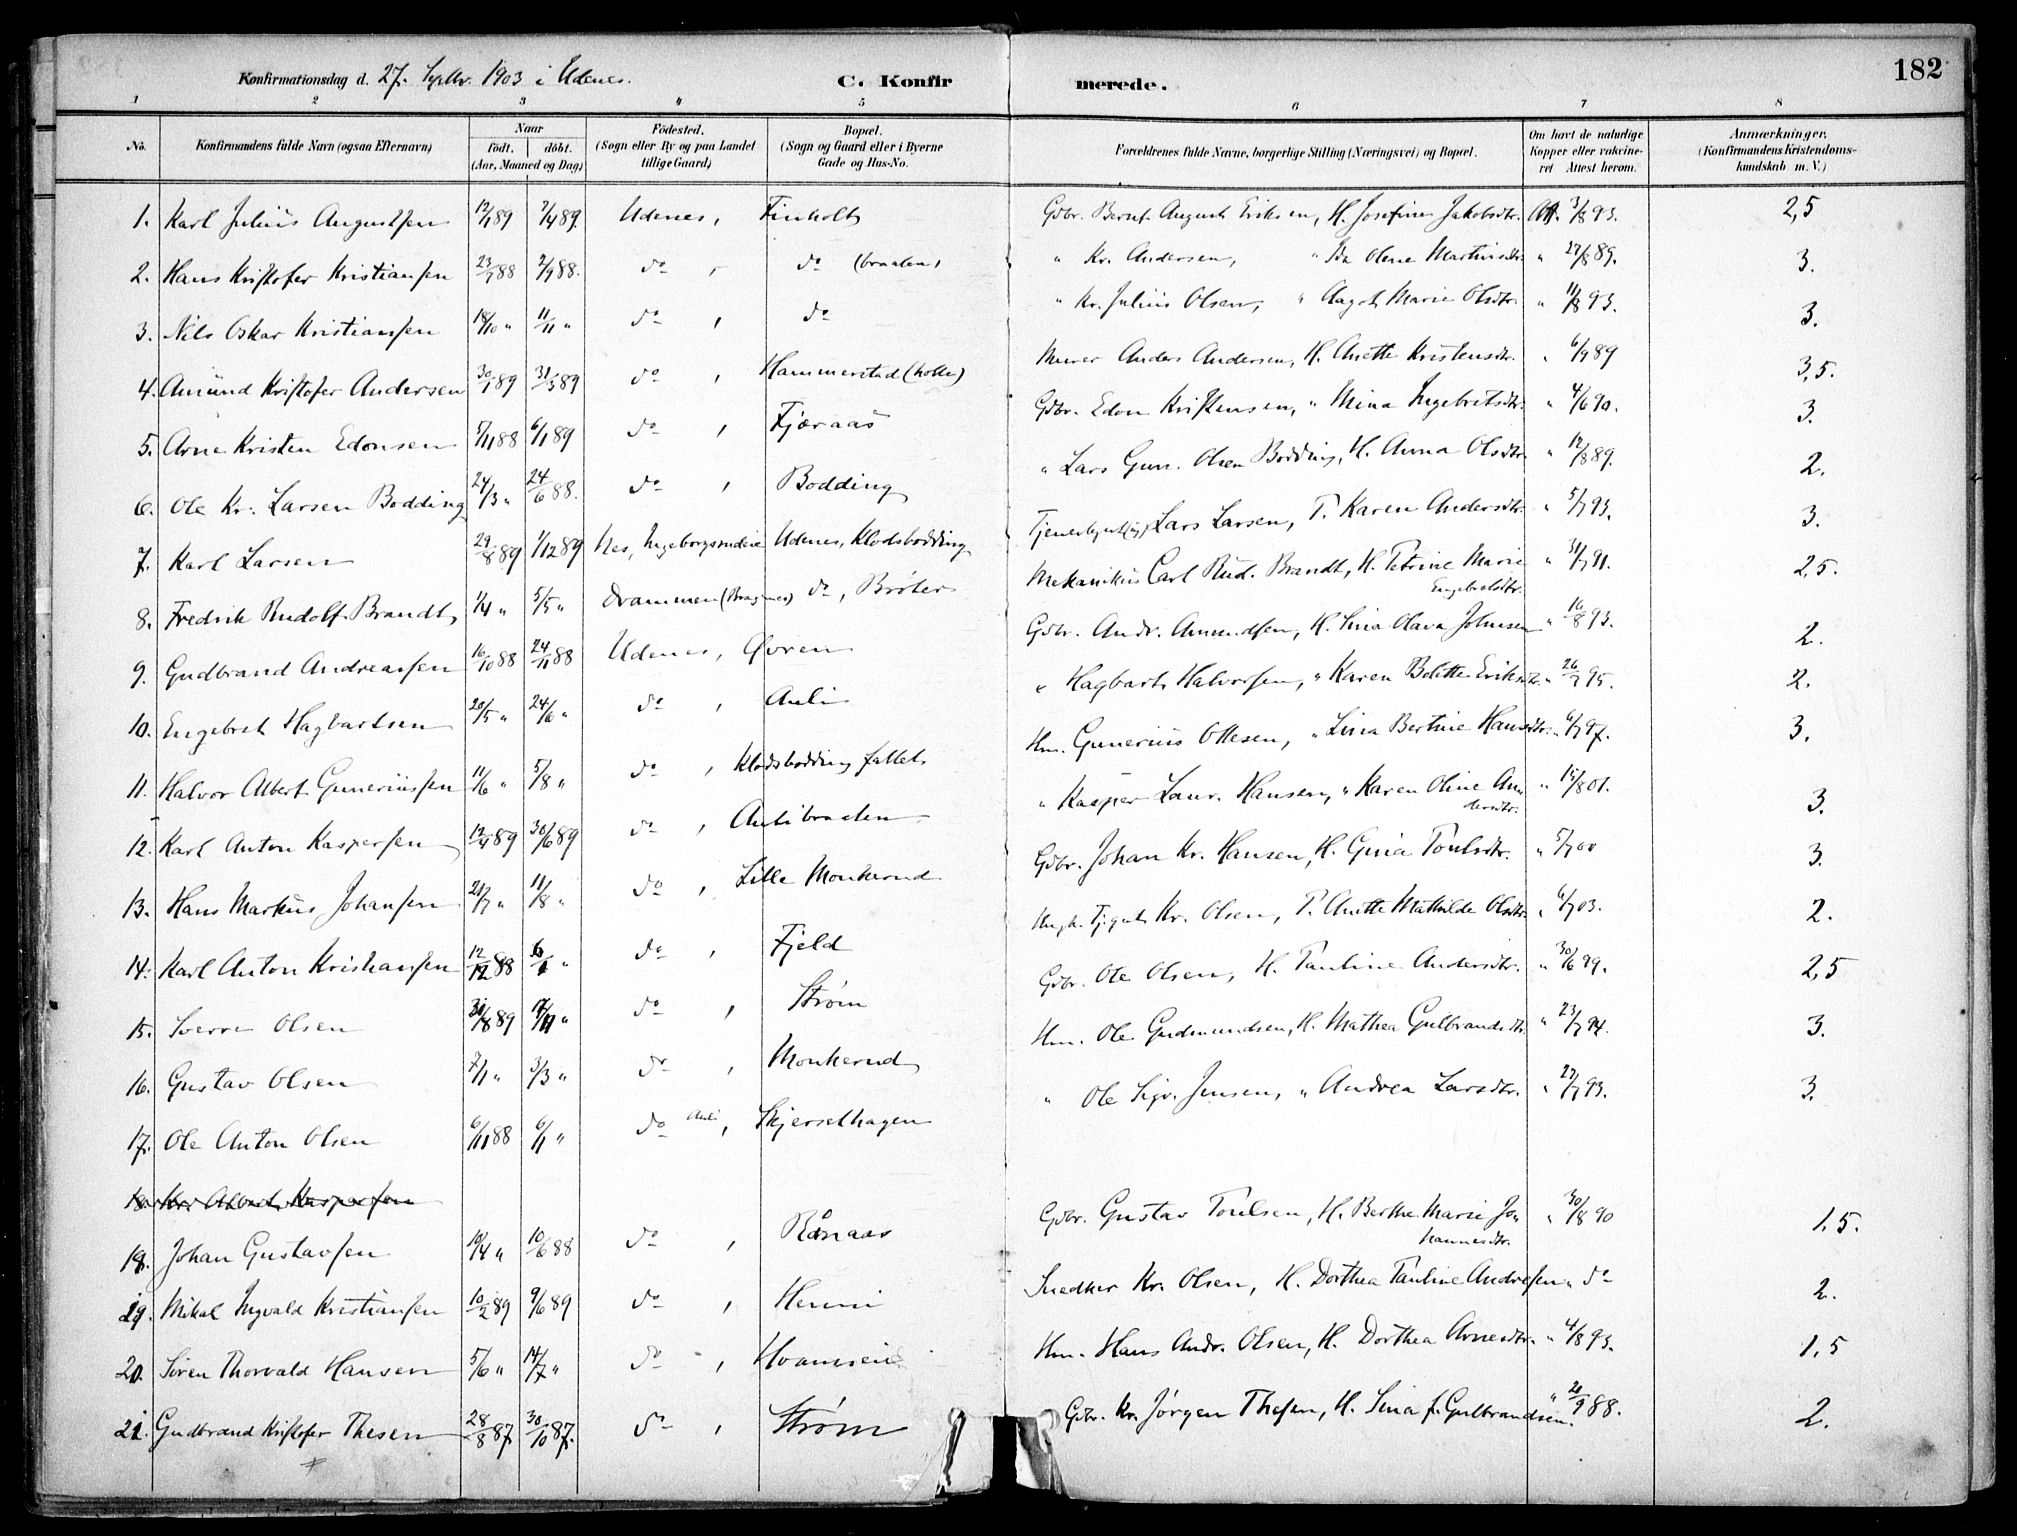 182
Konfirmationsdag d. 27. Septbr. 1903 i Udenes.
C. Konfirmerede.
1 2 3 4 5 6 7 8
No. Konfirmandens fulde Navn (ogsaa Efternavn) Naar födt. döbt. (Aar, Maaned og Dag) Födested. (Sogn eller By og paa Landet tillige Gaard) Bopæl. (Sogn og Gaard eller i Byerne Gade og Hus-No. Forældrenes fulde Navne, borgerlige Stilling (Næringsvei) og Bopæl. Om havt de naturlige Kopper eller vakcineret Attest herom. Anmærkninger. (Konfirmandens Kristendomskundskab m. V.)
1. Karl Julius Augustsen 12/1 89 7/4 89. Udenes, Finholt Gdbr. Bernt August Eriksen, H. Josefine Jakobsdtr. Att. 3/8 93. 2,5
2. Hans Kristofer Kristiansen 23/7 88 2/9 88. do - do (braaten) " Kr. Andersen, " Olene Martinsdtr. " 27/8 89. 3.
3. Nils Oskar Kristiansen 18/10 " 11/11 " do , do " Kr. Julius Olsen, " Aagot Marie Olsdtr. " 11/8 93. 3.
4. Amund Kristofer Andersen 30/1 89 31/3 89 do , Hammerstad (holte) Murer Anders Andersen, H. Anette Kristensdtr. " 6/9 89 3,5.
5. Arne Kristen Edonsen 5/11 88 6/1 89 do , Fjæraas Gdbr. Edon Kristensen, " Mina Ingebretsdtr. " 4/6 90. 3.
6. Ole Kr. Larsen Bodding 24/3 " 24/6 88. do , Bodding " Lars Gun. Olsen Bodding, H. Anna Olsdtr. " 12/8 89. 2.
7. Karl Larsen 29/8 89 1/12 89 Nes, Ingeborgsrudeie Udenes, Klodsbodding Lars Larsen, T. Karen Andersdtr. " 5/7 93. 3.
8. Fredrik Rudolf Brandt 1/4 " 5/5 " Drammen (Bragenes) do, Bröter Mekanikus Carl Rud. Brandt, H. Petrine Marie Engebretsdtr. " 31/7 91. 2,5.
9. Gudbrand Andreassen 16/10 88 24/11 88 Udenes, Øvren Gdbr. Andr. Amundsen, H. Lina Olava Johnsen " 16/8 93. 2.
10. Engebret Hagbartsen 20/5 " 24/6 " do , Auli " Hagbart Halvorsen, " Karen Bolette Eriksdtr. " 26/7 95. 2.
11. Halvor Albert Gunerius­sen 11/6 " 5/8 " do , Klodsbodding fallet Hm. Gunerius Ottesen, " Lina Bertine Hansdtr. " 6/7 97. 3.
12. Karl Anton Kaspersen 12/4 89 30/6 89 do , Aulibraaten " Kasper Laur. Hansen, " Karen Oline Andersdtr. " 15/8 01. 3.
13. Hans Markus Johansen 21/7 " 11/8 " do , Lille Monkerud Gdbr. Johan Kr. Hansen, H. Gina Poulsdtr. " 5/7 00 3.
14. Karl Anton Kristiansen 12/12 88 6/1 " do , Fjeld Ungk. Tjgut Kr. Olsen, P. Anette Mathilde Olsdtr. " 6/7 03. 2.
15. Sverre Olsen 31/8 89 17/11 " do , Strøm Gdbr. Ole Olsen, H. Pauline Andersdtr. " 30/6 99. 2,5
16. Gustav Olsen 7/1 " 3/3 " do , Monkerud Hm. Ole Gudmundsen, H. Mathea Gulbrandsdtr. " 23/7 94. 3.
17. Ole Anton Olsen 6/11 88 6/1 " do Auli , Skjerselhagen " Ole Sigv. Jensen, " Andrea Larsdtr. " 27/7 93. 3.
18. Kr. Albert Kaspersen
18. Johan Gustavsen 10/4 " 10/6 88 do , Rånaas Gdbr. Gustav Poulsen, H. Berthe Marie Johannesdtr. " 30/8 90 1,5.
19. Mikal Ingvald Kristiansen 10/2 89 9/6 89 do , Henni Snedker Kr. Olsen, H. Dorthea Pauline Andresen " do 2.
20. Søren Thorvald Hansen 5/6 " 14/7 " do , Hvamseie Hm. Hans Andr. Olsen, H. Dorthea Arnesdtr. " 4/8 93. 1,5
21. Gudbrand Kristofer Thesen 28/8 87 30/10 87. do , Strøm Gdbr. Kr. Jørgen Thesen, H. Lina f. Gulbrandsen. " 21/9 88. 2.